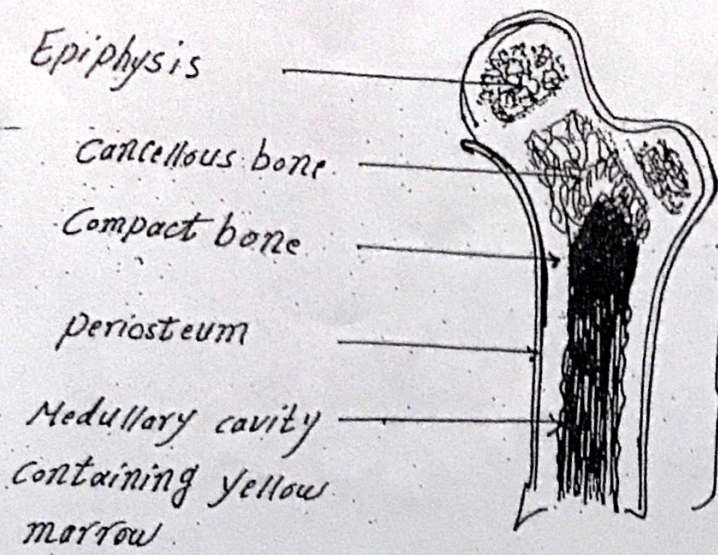 Epiphysis
Cancellous bone
Compact bone
periosteum
Medullary cavity
containing yellow
marrow